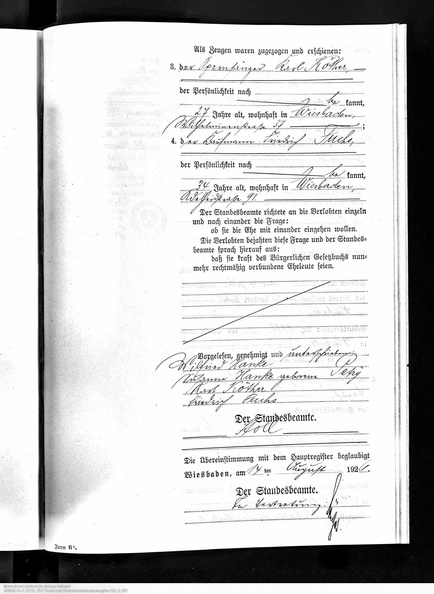 Als Zeugen waren zugezogen und erschienen:
3. der Opernsänger Karl Köther,
der Persönlichkeit nach
be kannt,
27 Jahre alt, wohnhaft in Wiesbaden,
Wilhelminenstraße 37 ;
4. der Kaufmann Friedrich Fuchs,
der Persönlichkeit nach
be kannt,
34 Jahre alt, wohnhaft in Wiesbaden,
Adelheidstraße 91.
Der Standesbeamte richtete an die Verlobten einzeln
und nach einander die Frage:
ob sie die Ehe mit einander eingehen wollen.
Die Verlobten bejahten diese Frage und der Standes-
beamte sprach hierauf aus:
daß sie kraft des Bürgerlichen Gesetzbuchs nun-
mehr rechtmäßig verbundene Eheleute seien.
Vorgelesen, genehmigt und unterschrieben
Wilfried Hanke
Hanke geborene
Karl Köther
Friedrich Fuchs
Der Standesbeamte.
Holl
Die Übereinstimmung mit dem Hauptregister beglaubigt
Wiesbaden, am 14 ten August 192
Der Standesbeamte.
In Vertretung
Form B¹.